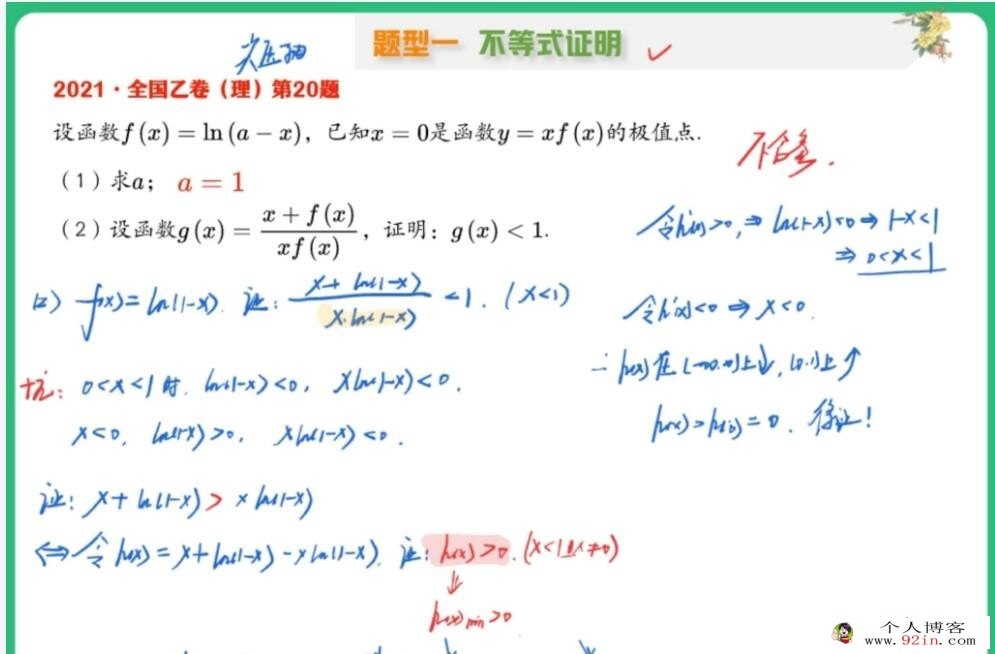 题型一 不等式证明 ✓
2021·全国乙卷（理）第20题
设函数f(x)=ln(a-x)，已知x=0是函数y=xf(x)的极值点.
不含参.
（1）求a； a=1
（2）设函数g(x)=\frac{x+f(x)}{xf(x)}，证明：g(x)<1.
令h'(x)>0,⇒ln(1-x)<0⇒1-x<1
⇒0<x<1
(2) f(x)=ln(1-x). 证：\frac{x+ln(1-x)}{x·ln(1-x)}<1. (x<1)
令h'(x)<0⇒x<0.
坑：0<x<1时. ln(1-x)<0, xln(1-x)<0.
∴h(x)在(-∞,0)上↓,(0,1)上↑
x<0, ln(1-x)>0, xln(1-x)<0.
h(x)>h(0)=0. 得证！
证：x+ln(1-x)>xln(1-x)
⇔令h(x)=x+ln(1-x)-xln(1-x). 证：h(x)>0.(x<1且x≠0)
↓
h(x)min>0
个人博客
www.92in.com